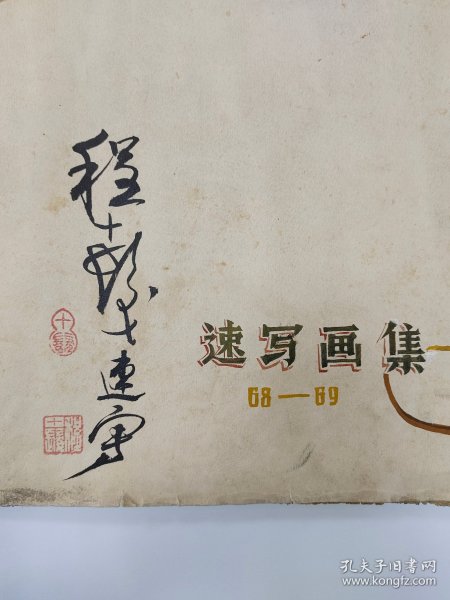 程十髮速写
速写画集
68—69
孔夫子旧书网
www.kongfz.com